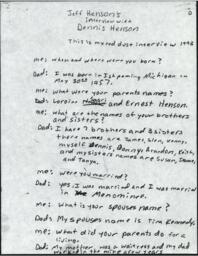 Jeff Henson's
Interview with
Dennis Henson
This is my red dose interview 1998
me: when and where were you born?
Dad: I was born in Ishpeming Michigan on
May 1957.
me: what were your parents names?
Dad: Loraine and Ernest Henson.
me: what are the names of your brothers
and sisters?
Dad: I have 7 brothers and 3 sisters
there names are James, Glen, Kenny,
myself Dennis, Danny, Brandon, Erick,
and my sisters names are Susan, Diane,
and Tanya.
me: were you married?
Dad: yes I was married and I was married
in Menominee.
me: What is your spouses name?
Dad: My spouses name is Tina Kennedy.
me: What did your parents do for a
living.
Dad: My mother was a waitress and my dad
worked in the mine years